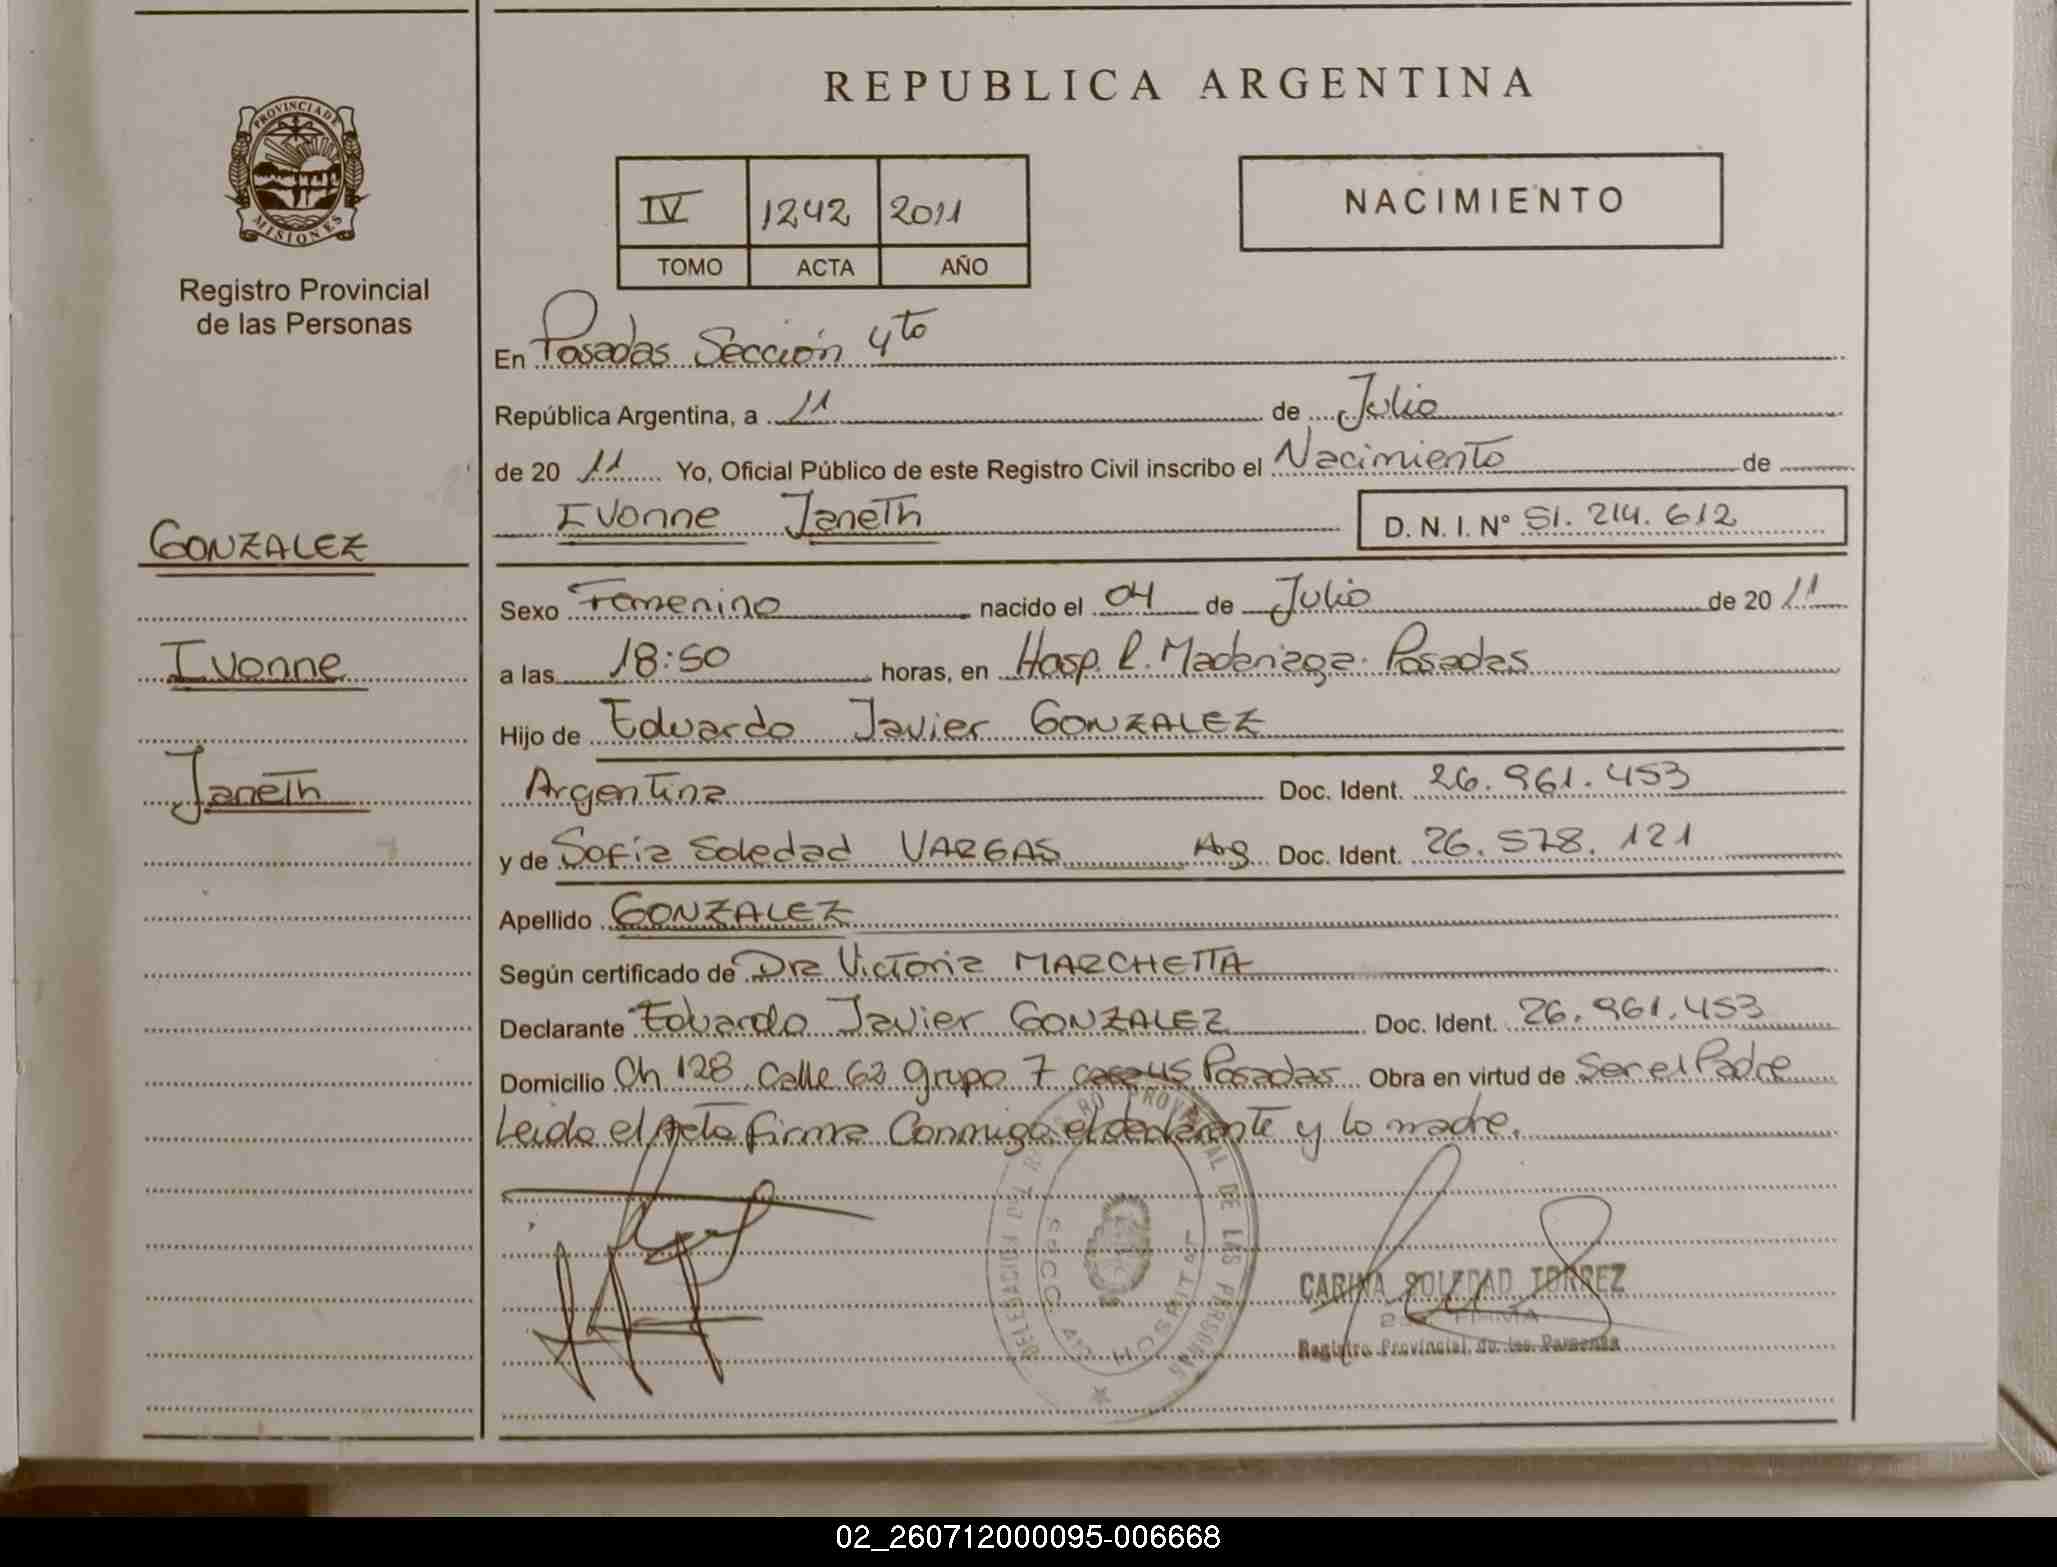 REPUBLICA ARGENTINA
PROVINCIA DE
MISIONES
Registro Provincial
de las Personas
IV 1242 2011
TOMO ACTA AÑO
NACIMIENTO
En Posadas Sección 4to
República Argentina, a 11 de Julio
de 20 11 Yo, Oficial Público de este Registro Civil inscribo el Nacimiento de
Ivonne Janeth D. N. I. Nº 51. 214. 612
GONZALEZ
Ivonne
Janeth
Sexo Femenino nacido el 04 de Julio de 20 11
a las 18:50 horas, en Hosp. R. Madariaga. Posadas
Hijo de Eduardo Javier GONZALEZ
Argentina Doc. Ident. 26. 961. 453
y de Sofia Soledad VARGAS Arg Doc. Ident. 26. 578. 121
Apellido GONZALEZ
Según certificado de Dra Victoria MARCHETTA
Declarante Eduardo Javier GONZALEZ Doc. Ident. 26. 961. 453
Domicilio Ch 128 Calle 62 grupo 7 casa 45 Posadas Obra en virtud de Ser el Padre
Leido el Acta firma Conmigo el declarante y la madre.
DELEGACION DEL REGISTRO PROVINCIAL DE LAS PERSONAS
SECC. 4ta HOSPITAL
CARINA SOLEDAD TORREZ
FIRMA
Registro Provincial de las Personas
02_260712000095-006668